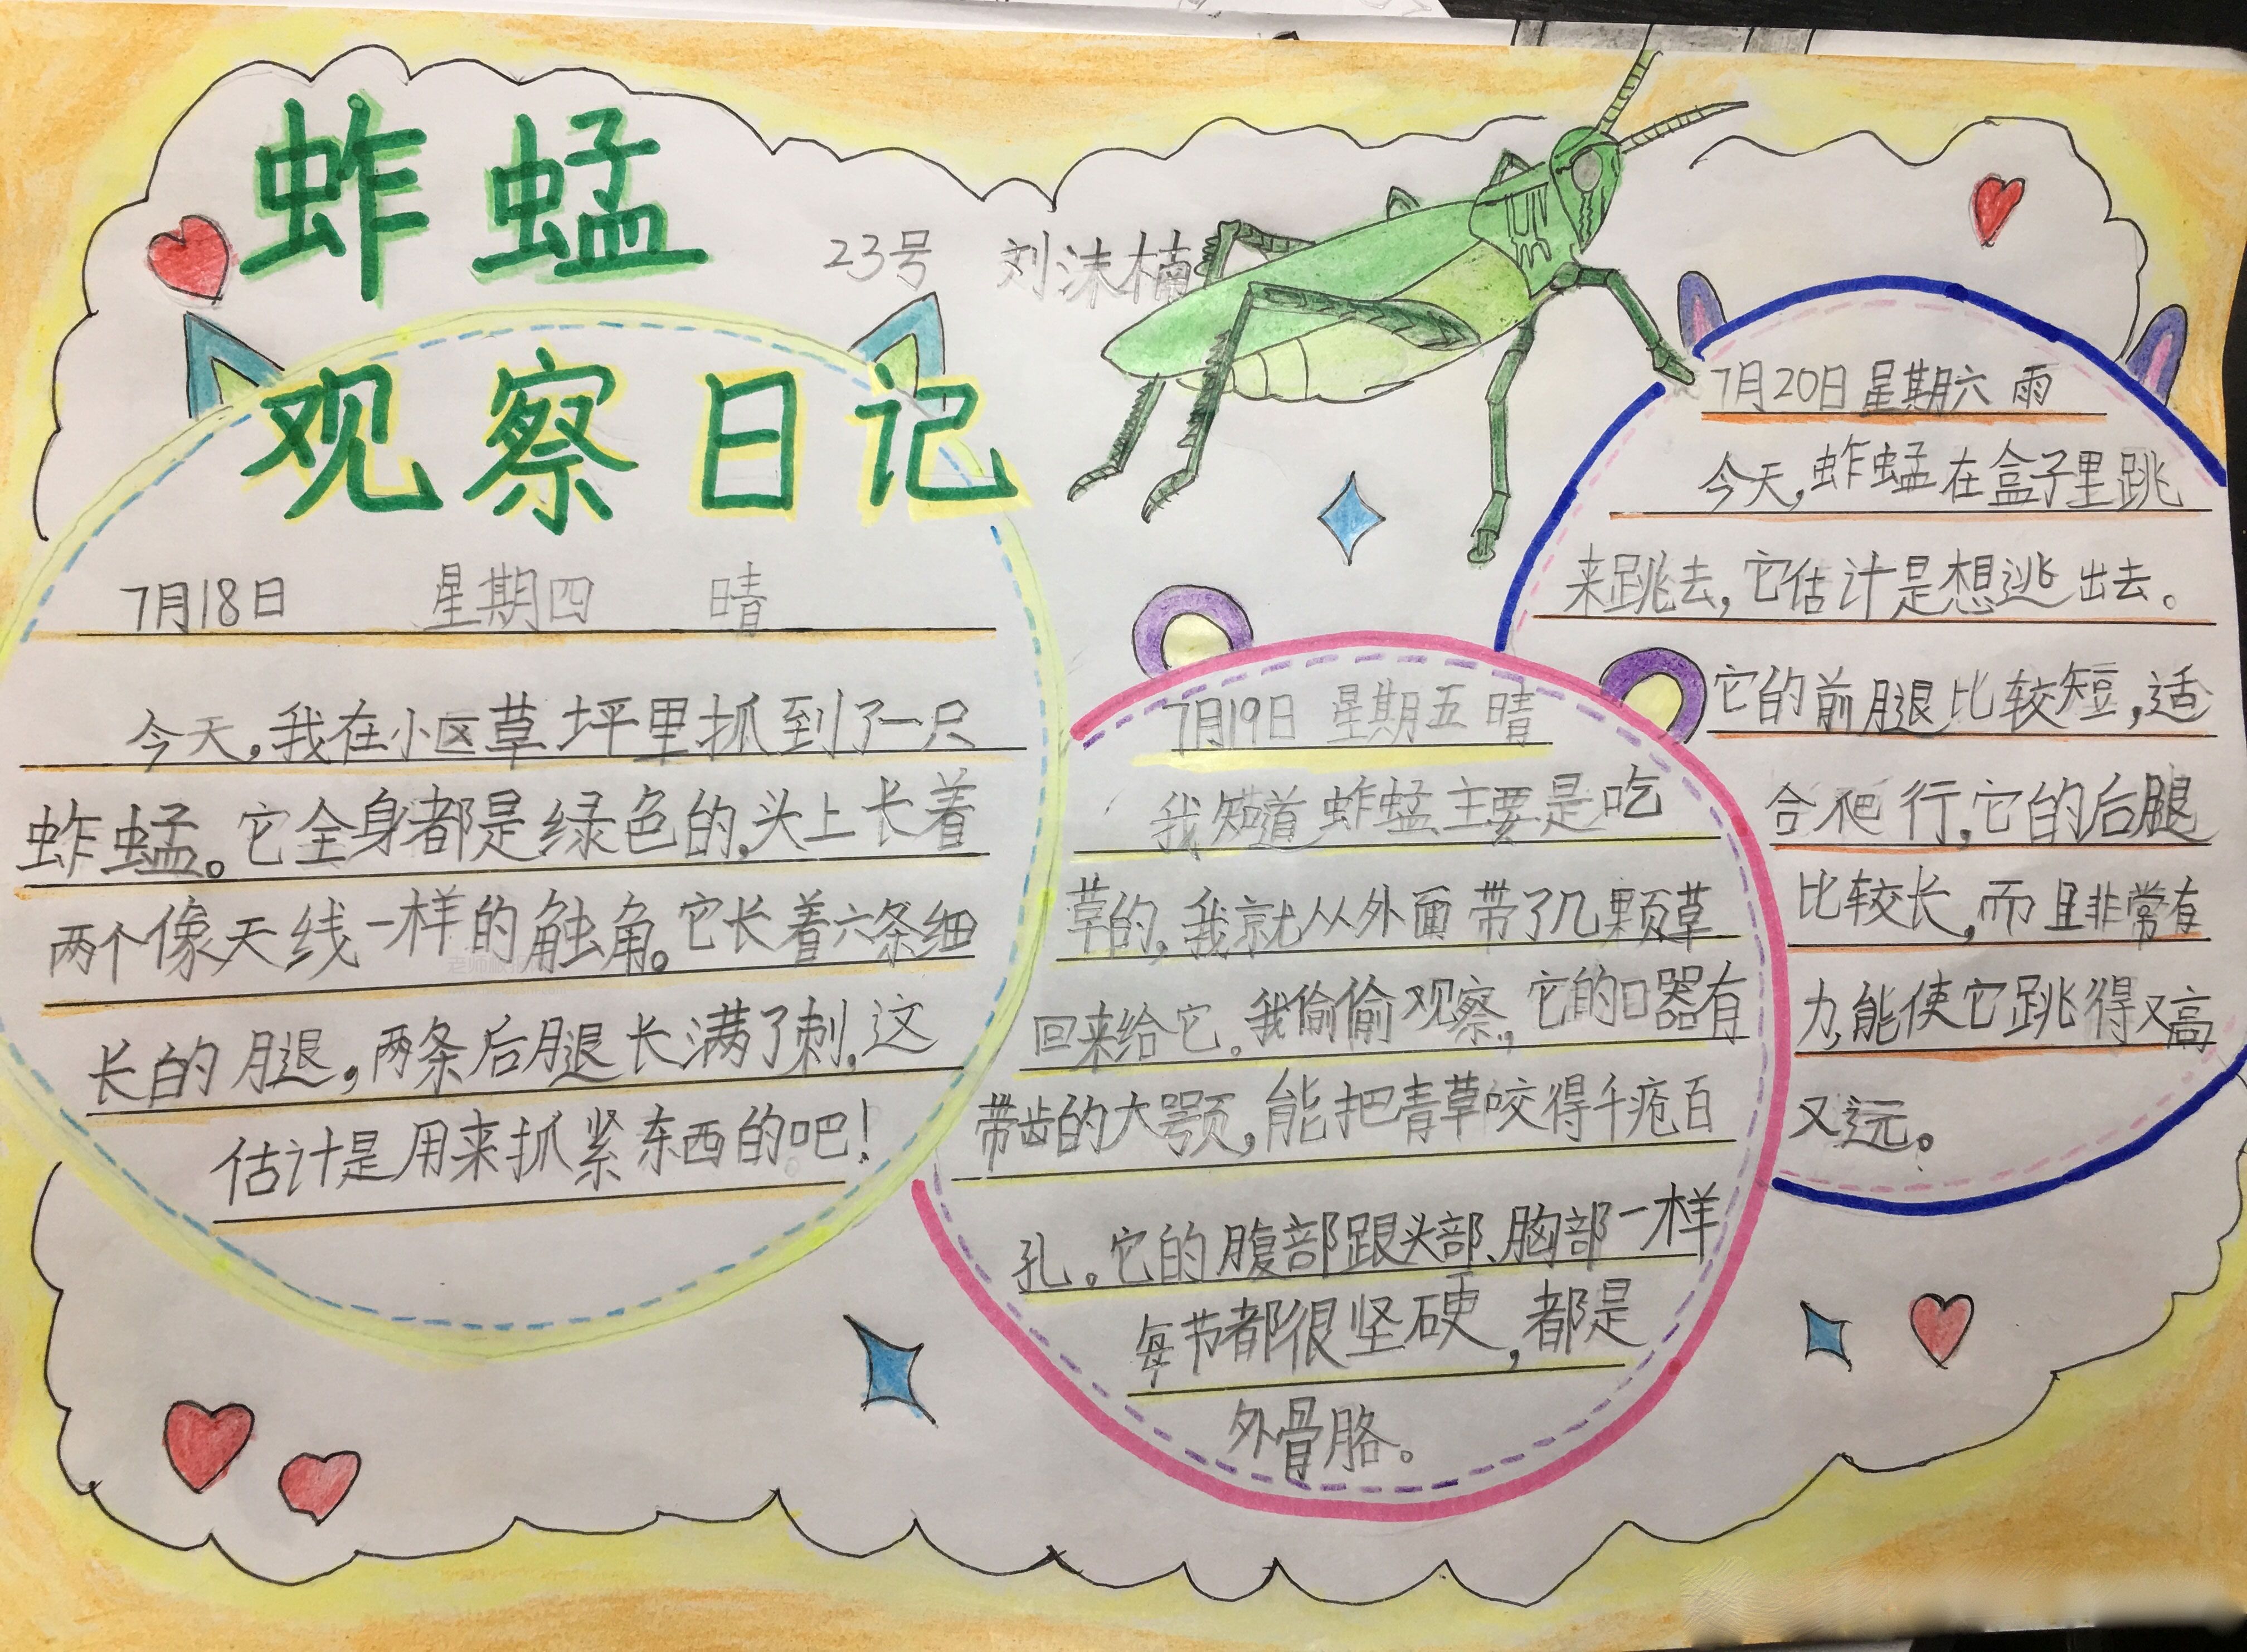 蚱蜢
23号 刘沫楠
观察日记
7月18日 星期四 晴
今天,我在小区草坪里抓到了一只
蚱蜢。它全身都是绿色的,头上长着
两个像天线一样的触角。它长着六条细
长的腿,两条后腿长满了刺,这
估计是用来抓紧东西的吧!
7月19日 星期五 晴
我知道蚱蜢主要是吃
草的,我就从外面带了几颗草
回来给它。我偷偷观察,它的口器有
带齿的大颚,能把青草咬得千疮百
孔。它的腹部跟头部、胸部一样
每节都很坚硬,都是
外骨胳。
7月20日 星期六 雨
今天,蚱蜢在盒子里跳
来跳去,它估计是想逃出去。
它的前腿比较短,适
合爬行,它的后腿
比较长,而且非常有
力,能使它跳得又高
又远。